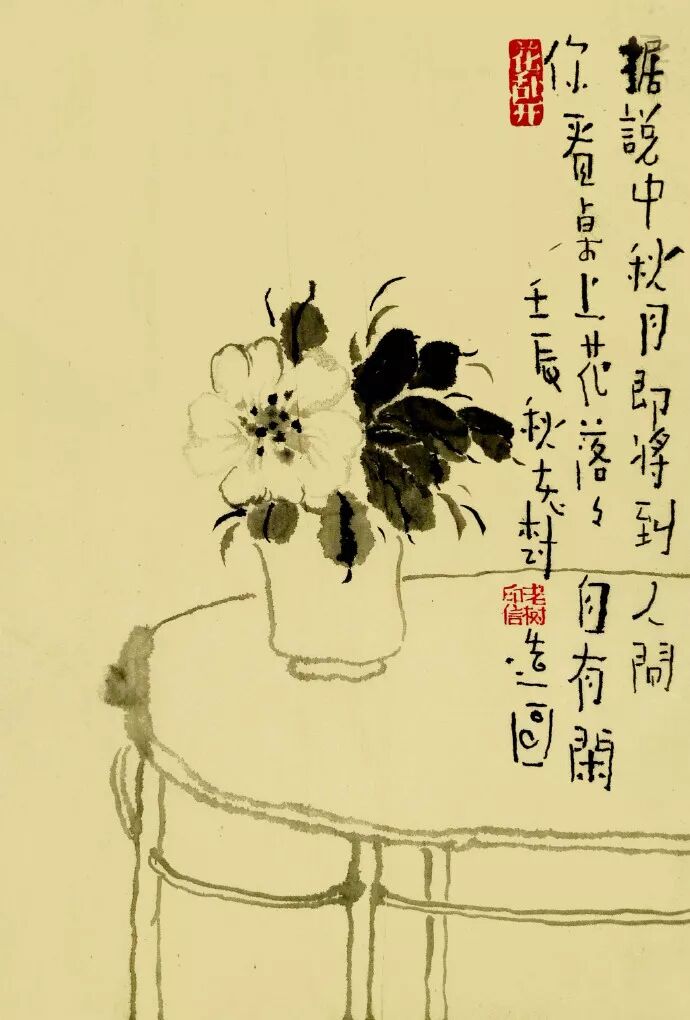 据說中秋月即將到人間
你看桌上花落々自有閑
壬辰秋老树造圖
花乱开
老树印信